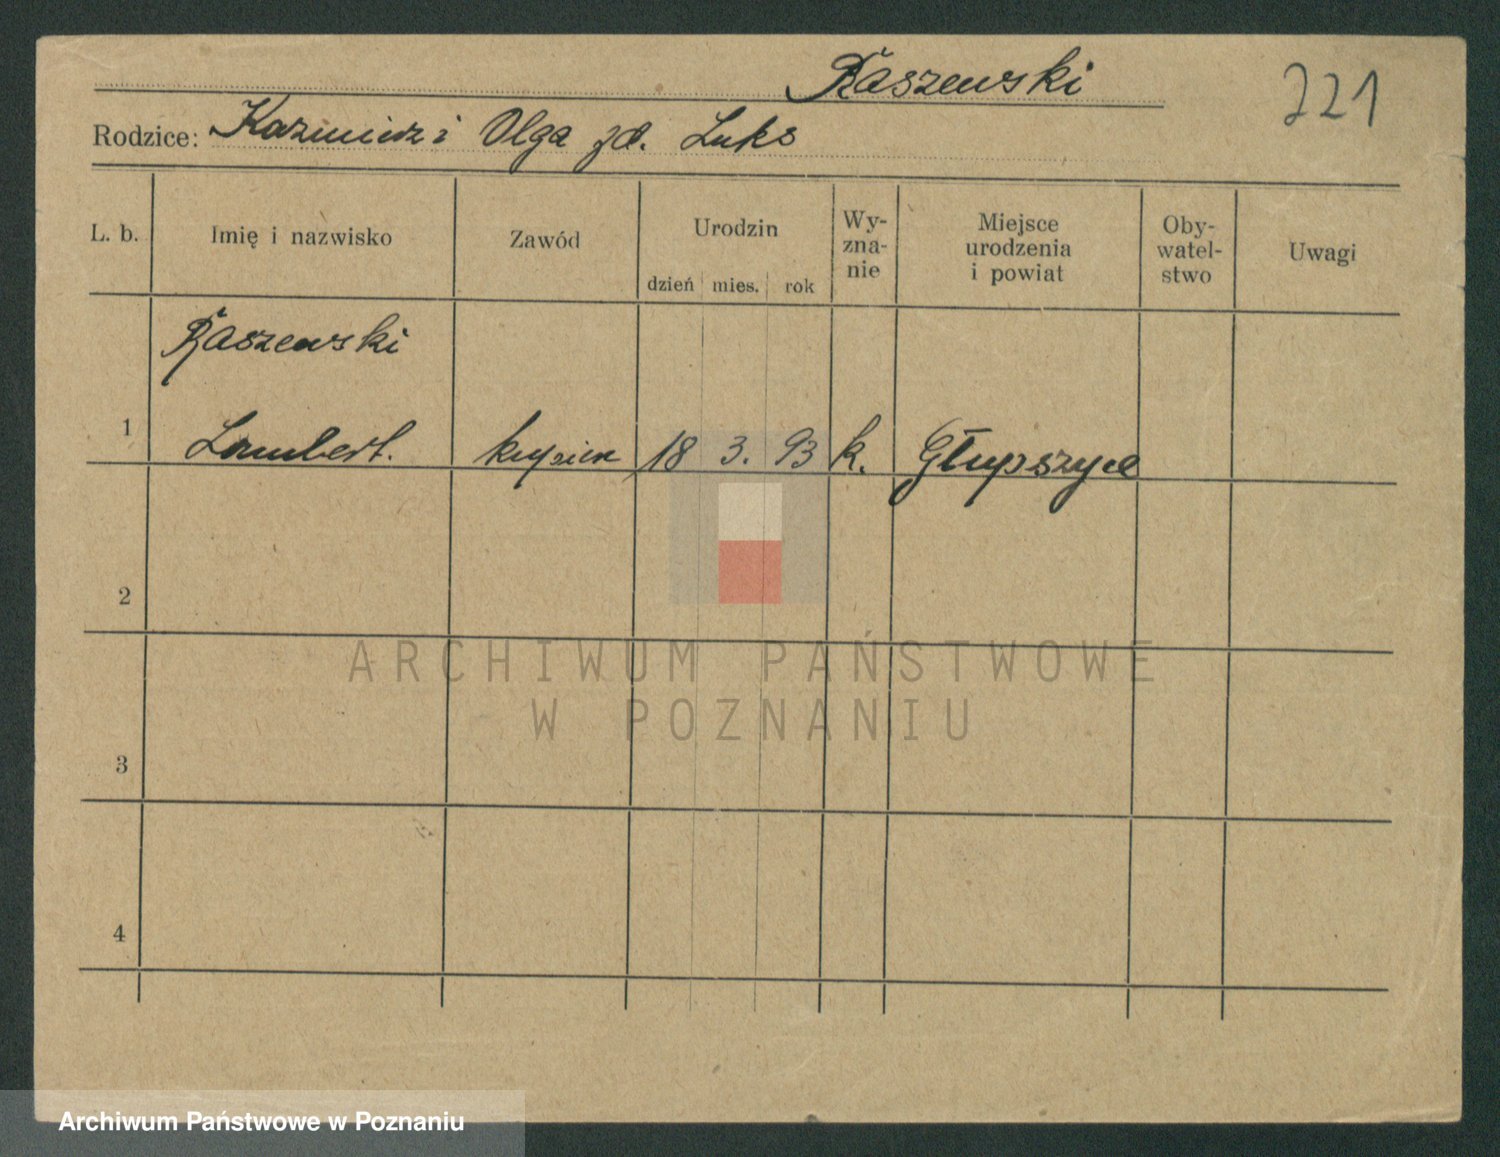 Raszewski
721
Rodzice: Kazimierz i Olga zd. Luks
L. b.
Imię i nazwisko
Zawód
Urodzin
dzień mies. rok
Wy-
zna-
nie
Miejsce
urodzenia
i powiat
Oby-
watel-
stwo
Uwagi
Raszewski
1 Lambert. kupiec 18 3. 93 k. Głupszyce
2
ARCHIWUM PAŃSTWOWE
W POZNANIU
3
4
Archiwum Państwowe w Poznaniu